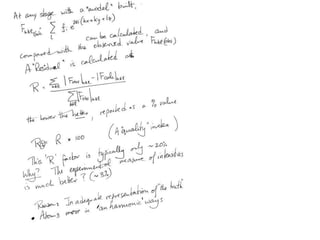 At any stage with a "model" built,
F_hkl(calc) = Σ_j f_j e^{2πi(hx+ky+lz)}
can be calculated, and
compared with the observed value F_hkl(obs)
A "Residual" is calculated as
R = Σ_hkl | |F_obs|_hkl - |F_calc|_hkl | / Σ_hkl |F_obs|_hkl
the lower the better, reported as a % value
R * 100 (A quality index)
This 'R' factor is typically only ~20%
Why? The experimental measure of
is much better? (~3%)
Reasons Inadequate representation of the truth
• Atoms move in "anharmonic" ways